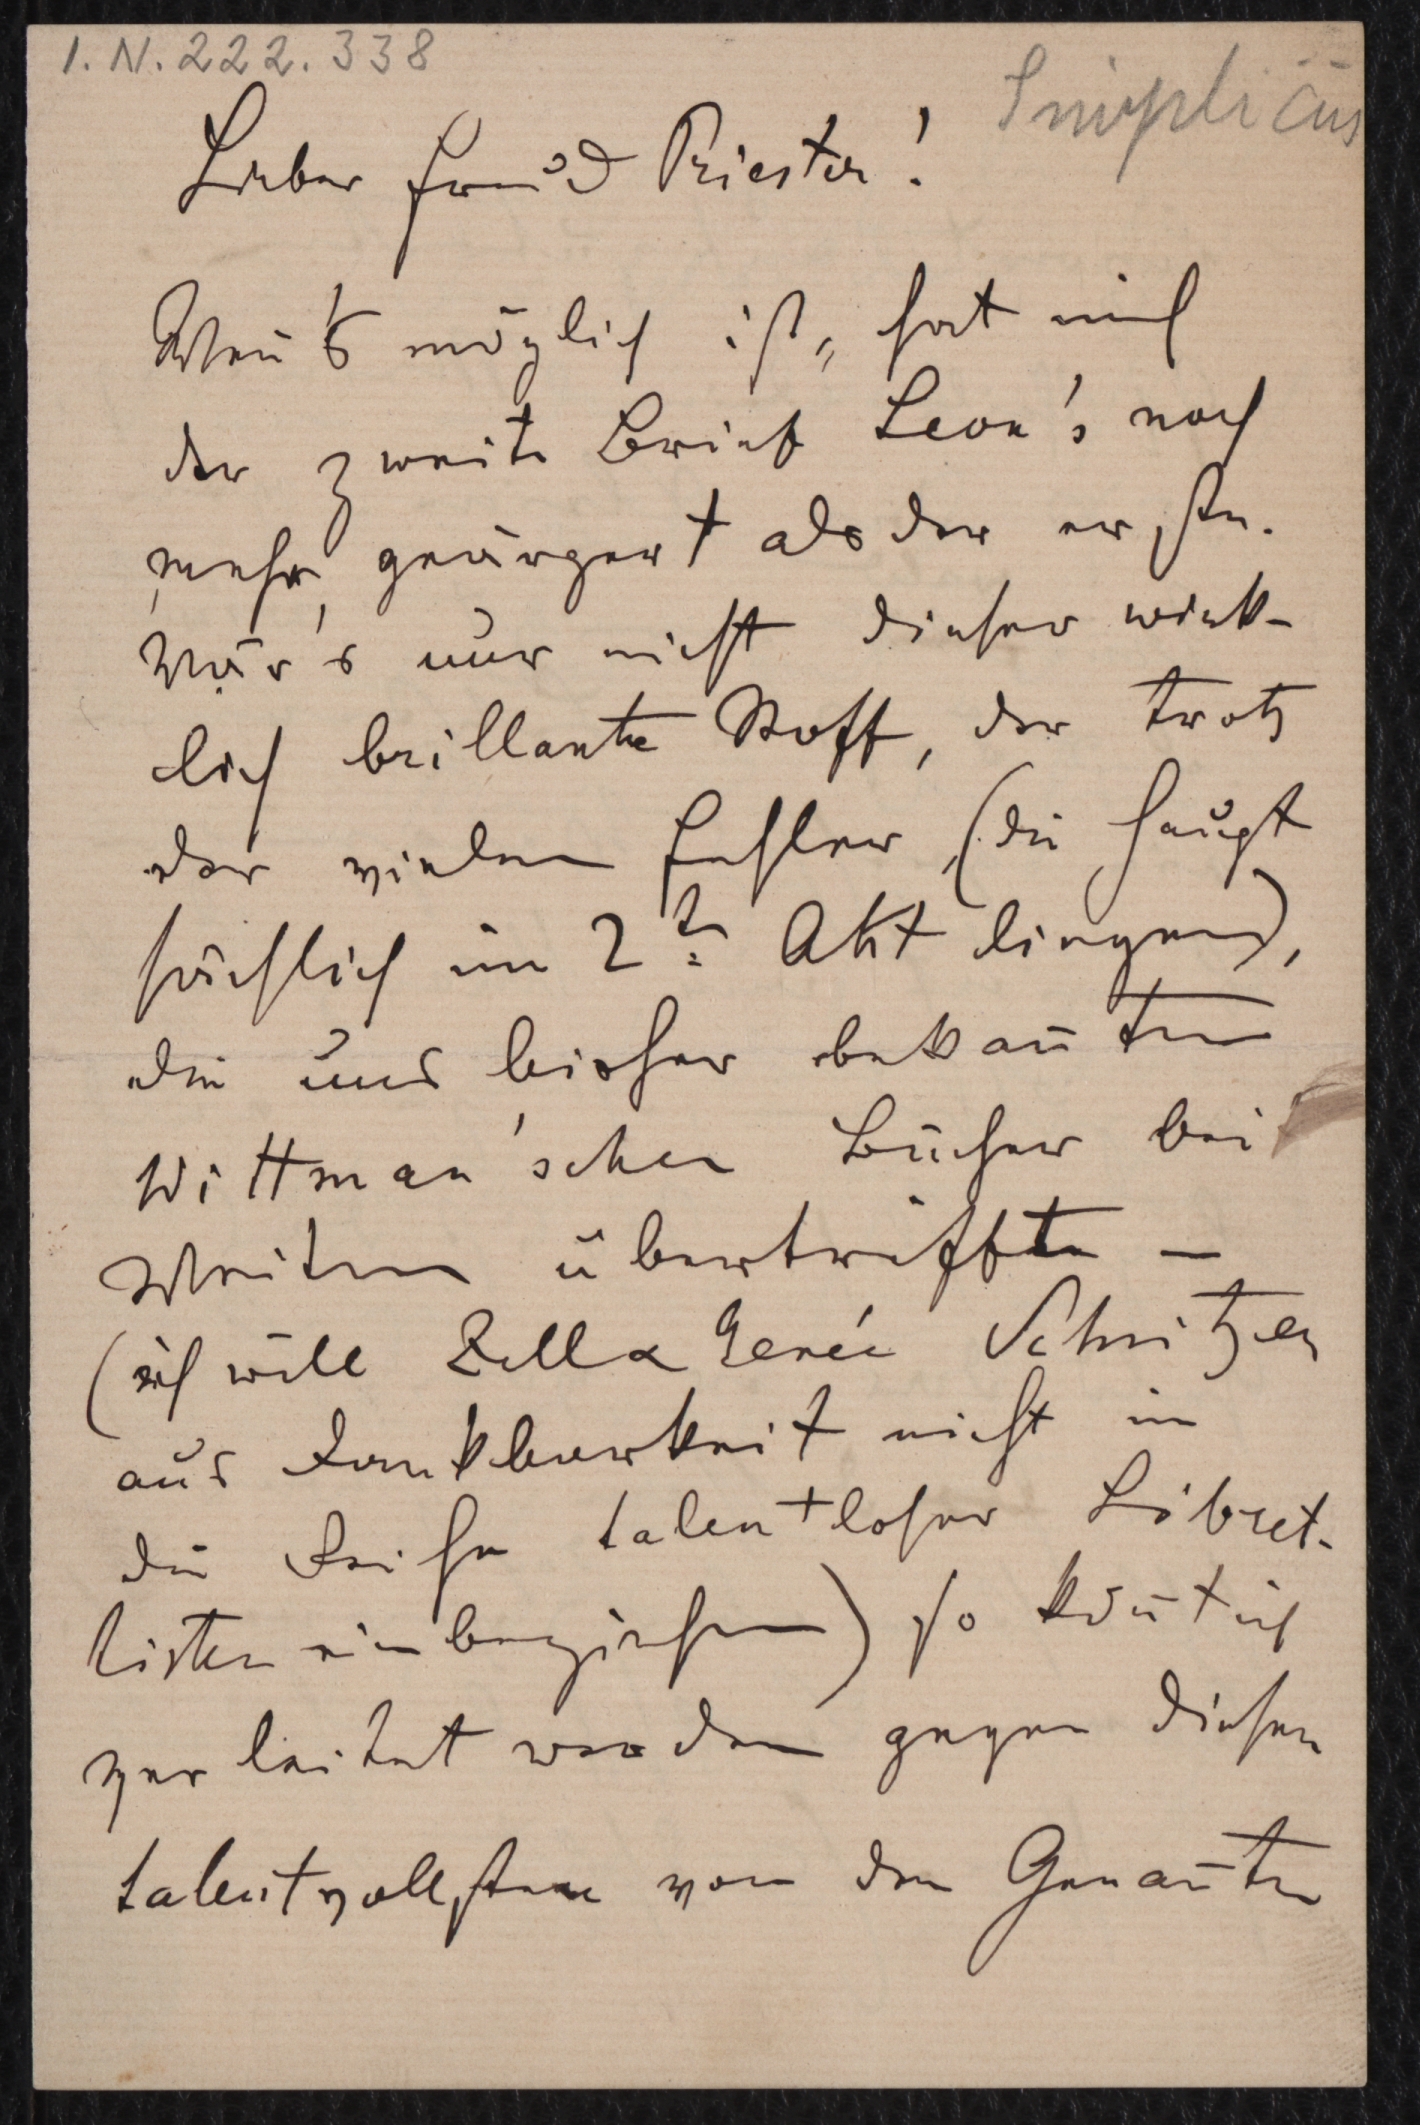 I. N. 222.338
Simplicius
Lieber Freund Priester!
Wen̄'s möglich ist, hat mich
der zweite Brief Leon's noch
mehr geärgert als der erste.
Wär's nur nicht dieser wirk-
lich brillante Stoff, der trotz
der vielen Fehler, (die haupt
sächlich im 2ten Akt liegen),
die uns bisher bekan̄ten
Wittman'schen Bücher bei
Weitem übertrifft –
(ich will Zell & Genée Schnitzer
aus Dankbarkeit nicht in
die Reihe talentloser Libret-
tisten einbeziehen) so kön̄t ich
verleitet werden gegen diesen
talentvollsten von den Genan̄ten